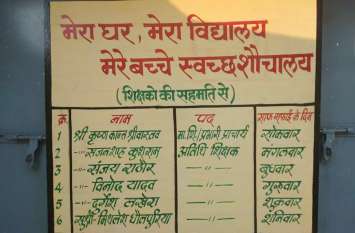 मेरा घर, मेरा विद्यालय
मेरे बच्चे स्वच्छ शौचालय
(शिक्षकों की सहमति से)
क्र. नाम पद साफ सफाई के दिन
1 श्री कृष्ण कान्त श्रीवास्तव मा.शि./प्रभारी प्राचार्य सोमवार
2 -〃- कुशराम अतिथि शिक्षक मंगलवार
3 -〃- संजय राठौर -〃- बुधवार
4 -〃- विनोद यादव -〃- गुरुवार
5 -〃- दुर्गेश लखेरा -〃- शुक्रवार
6 सुश्री मिथलेश धौलपुरिया -〃- शनिवार